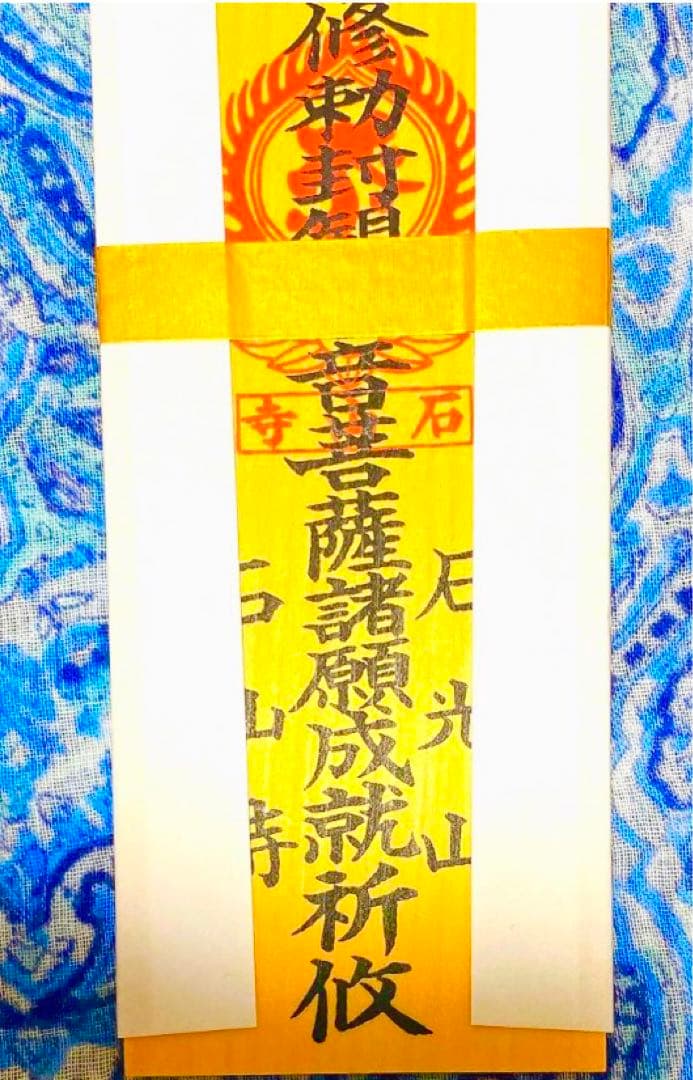 石光山
修勅封観音菩薩諸願成就祈攸
石山寺
石山寺